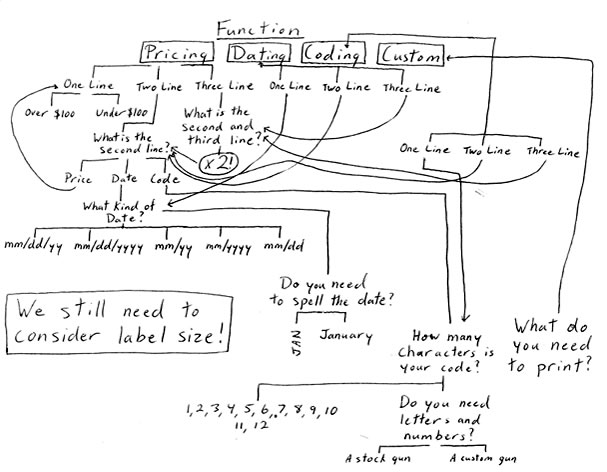 Function
Pricing Dating Coding Custom
One Line Two Line Three Line One Line Two Line Three Line
Over $100 Under $100
What is the
second and
third line?
What is the
second line?
x2!
One Line Two Line Three Line
Price Date Code
What Kind of
Date?
mm/dd/yy mm/dd/yyyy mm/yy mm/yyyy mm/dd
Do you need
to spell the date?
JAN January
We still need to
consider label size!
How many
characters is
your code?
What do
you need
to print?
1, 2, 3, 4, 5, 6, 7, 8, 9, 10
11, 12
Do you need
letters and
numbers?
A stock gun A custom gun